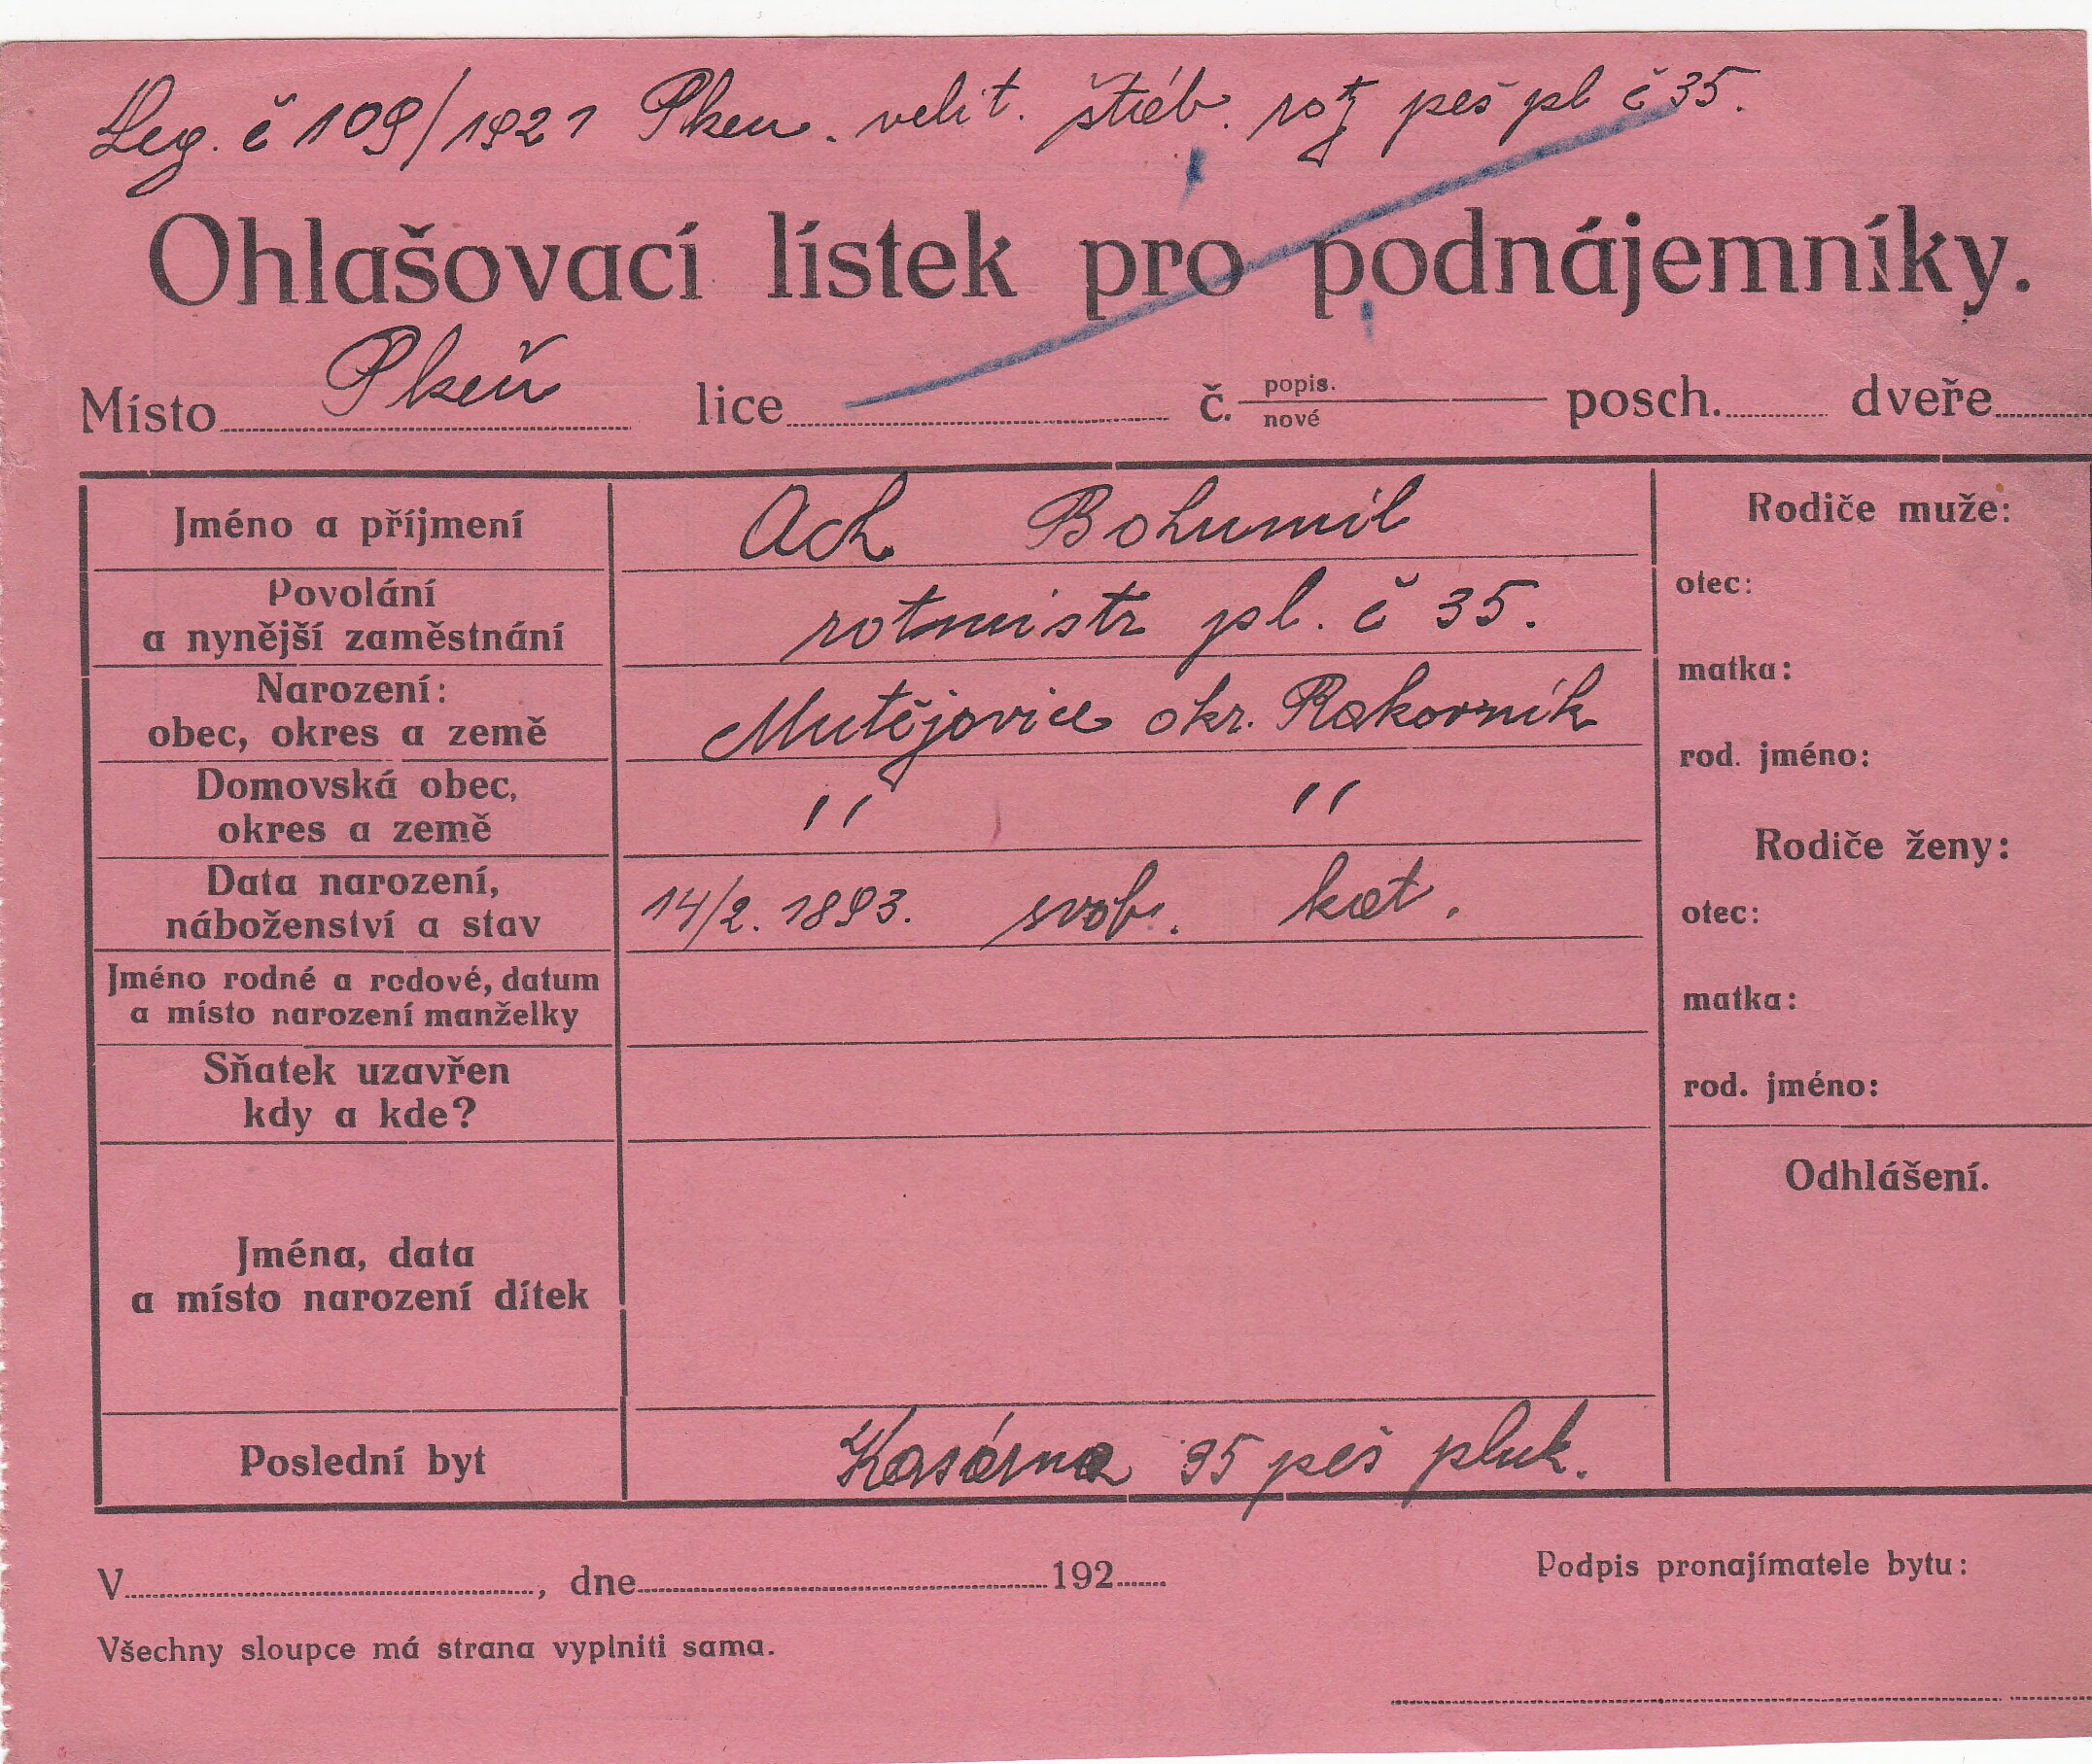 Leg. č 109/1921 Plzeň. velit. štáb. rot pěš pl č 35.
Ohlašovací lístek pro podnájemníky.
Místo Plzeň lice č. popis. nové posch. dveře
Jméno a příjmení Ach Bohumil
Rodiče muže:
Povolání
a nynější zaměstnání rotmistr pl. č 35.
otec:
Narození:
obec, okres a země Mutějovice okr. Rakovník
matka:
rod. jméno:
Domovská obec,
okres a země " "
Rodiče ženy:
Data narození,
náboženství a stav 14/2. 1893. svob. kat.
otec:
Jméno rodné a rodové, datum
a místo narození manželky
matka:
Sňatek uzavřen
kdy a kde?
rod. jméno:
Odhlášení.
Jména, data
a místo narození dítek
Poslední byt Kasárna 35 pěš pluk.
V , dne 192
Podpis pronajímatele bytu:
Všechny sloupce má strana vyplniti sama.